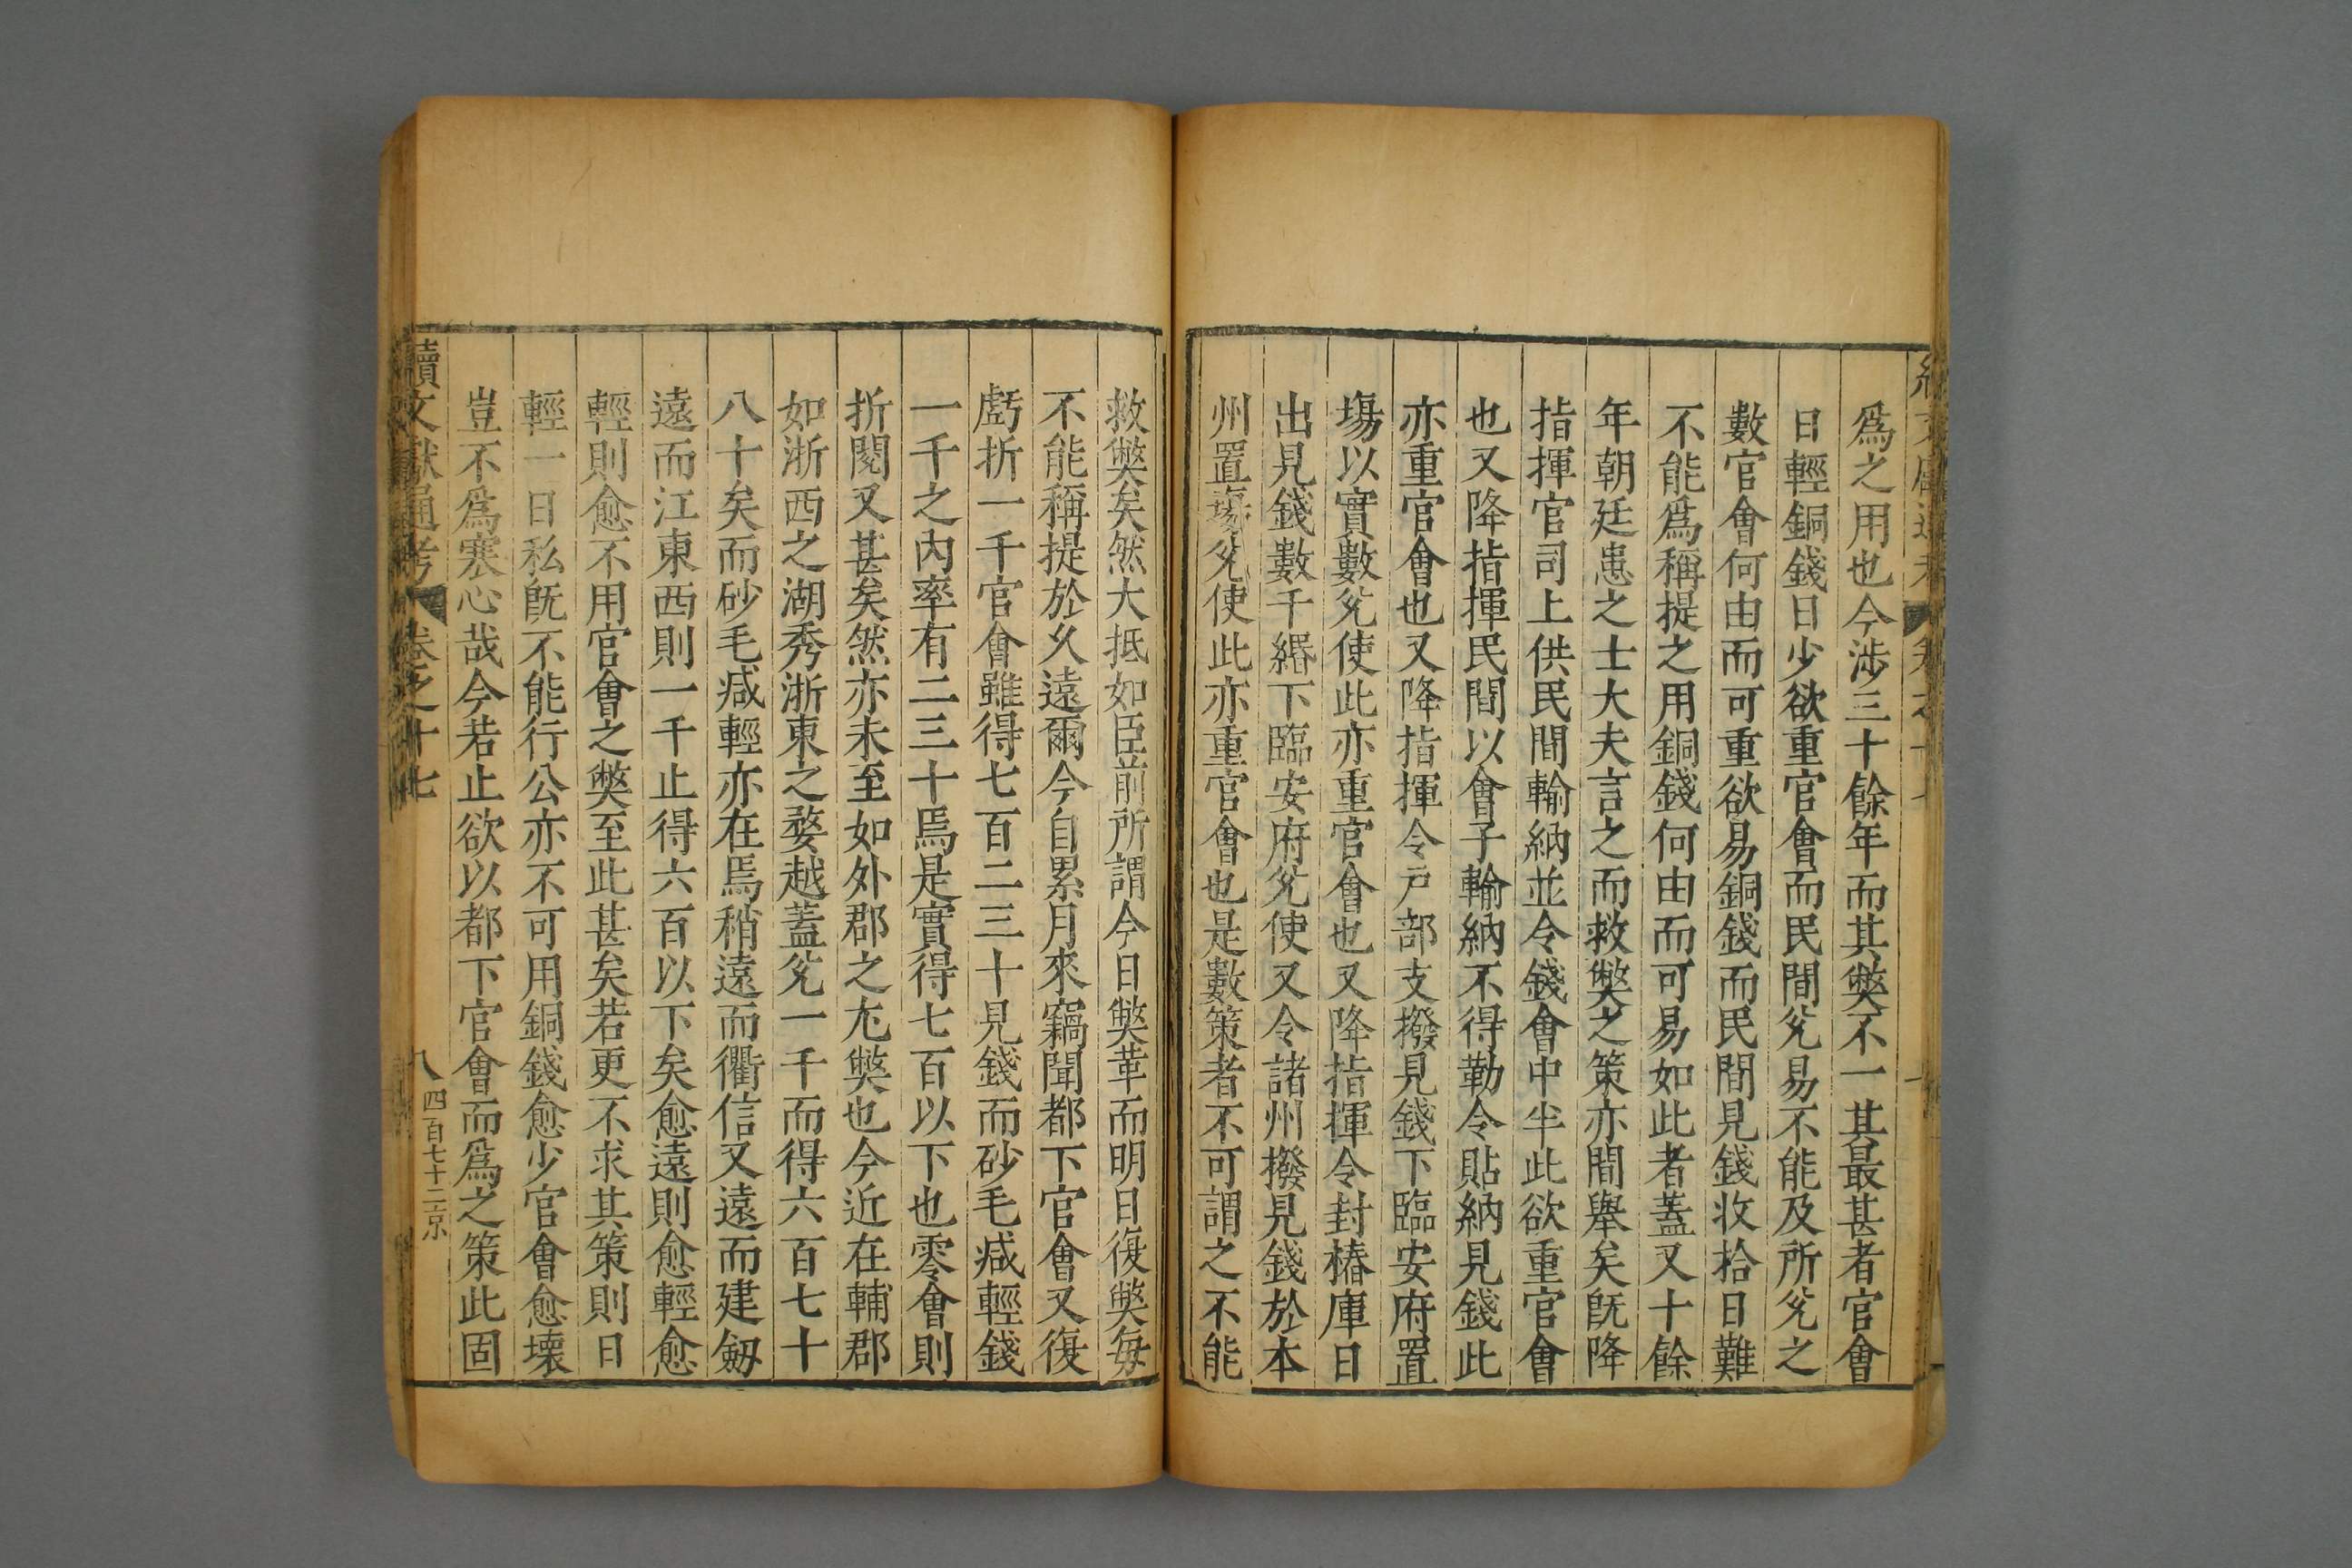 爲之用也今涉三十餘年而其獘不一其最甚者官會
日輕銅錢日少欲重官會而民間兊易不能及所兊之
數官會何由而可重欲易銅錢而民間見錢收拾日難
不能爲稱提之用銅錢何由而可易如此者蓋又十餘
年朝廷患之士大夫言之而救獘之策亦間舉矣旣降
指揮官司上供民間輸納並令錢會中半此欲重官會
也又降指揮民間以會子輸納不得勒令貼納見錢此
亦重官會也又降指揮令戸部支撥見錢下臨安府置
場以實數兊使此亦重官會也又降指揮令封椿庫日
出見錢數千緡下臨安府兊使又令諸州撥見錢於本
州置塲兊使此亦重官會也是數策者不可謂之不能
救獘矣然大抵如臣前所謂今日獘革而明日復獘毎
不能稱提於久遠爾今自累月來竊聞都下官會又復
虧折一千官會雖得七百二三十見錢而砂毛減輕錢
一千之內率有二三十焉是實得七百以下也零會則
折閱又甚矣然亦未至如外郡之尢獘也今近在輔郡
如浙西之湖秀浙東之婺越蓋兊一千而得六百七十
八十矣而砂毛減輕亦在焉稍遠而衢信又遠而建劒
遠而江東西則一千止得六百以下矣愈遠則愈輕愈
輕則愈不用官會之獘至此甚矣若更不求其策則日
輕一日私旣不能行公亦不可用銅錢愈少官會愈壞
豈不爲寒心哉今若止欲以都下官會而爲之策此固
續文獻通考 卷之十七
八 四百七十二京